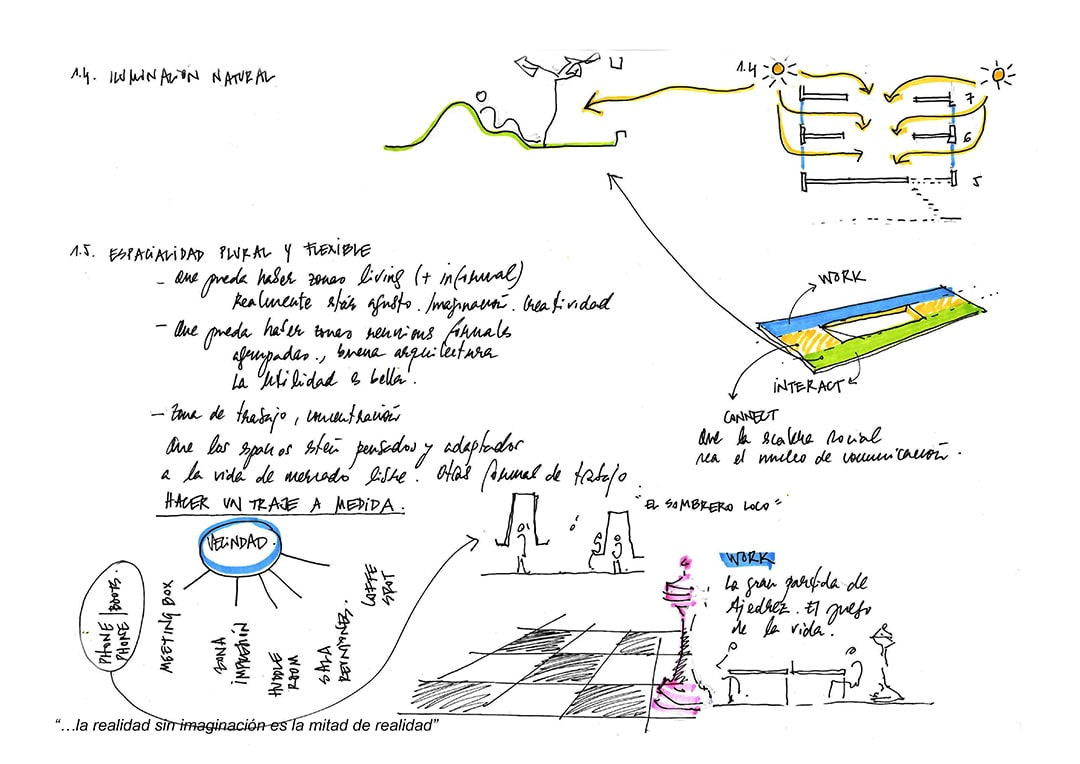 1.4. ILUMINACIÓN NATURAL
1.4
7
6
5
1.5. ESPACIALIDAD PLURAL Y FLEXIBLE
- Que pueda haber zonas living (+ informal)
Realmente estés agusto. Imaginación. Creatividad
- Que pueda haber zonas reuniones formales
agrupadas., buena arquitectura
La utilidad es bella.
- Zona de trabajo, concentración
Que los espacios estén pensados y adaptados
a la vida de mercado libre. Otras formas de trabajo.
HACER UN TRAJE A MEDIDA.
WORK
INTERACT
CONNECT
Que la escalera social
sea el núcleo de comunicación.
"EL SOMBRERO LOCO"
VECINDAD.
PHONE BOOTS.
PHONE
MEETING BOX
ZONA
IMPRESIÓN
HUDDLE
ROOM
SALA
REUNIONES.
COFFE
SPOT
WORK
La gran partida de
Ajedrez. El juego
de la vida.
"…la realidad sin imaginación es la mitad de realidad"